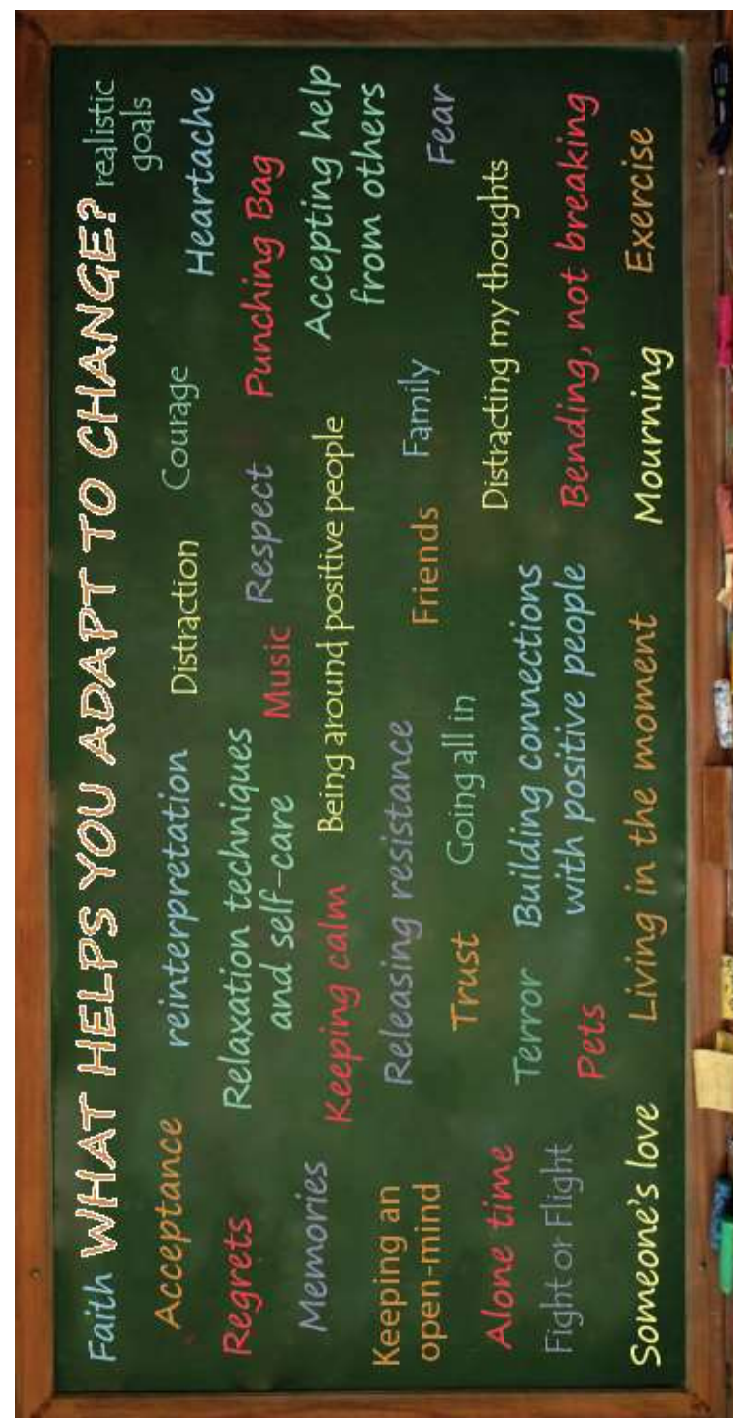 Faith WHAT HELPS YOU ADAPT TO CHANGE? realistic
goals
Acceptance reinterpretation Distraction Courage Heartache
Regrets Relaxation techniques
and self-care Music Respect Punching Bag
Memories Keeping calm Being around positive people Accepting help
from others
Keeping an
open-mind Releasing resistance Friends Family Fear
Trust Going all in Distracting my thoughts
Alone time Terror Building connections
with positive people
Fight or Flight Pets Bending, not breaking
Someone's love Living in the moment Mourning Exercise